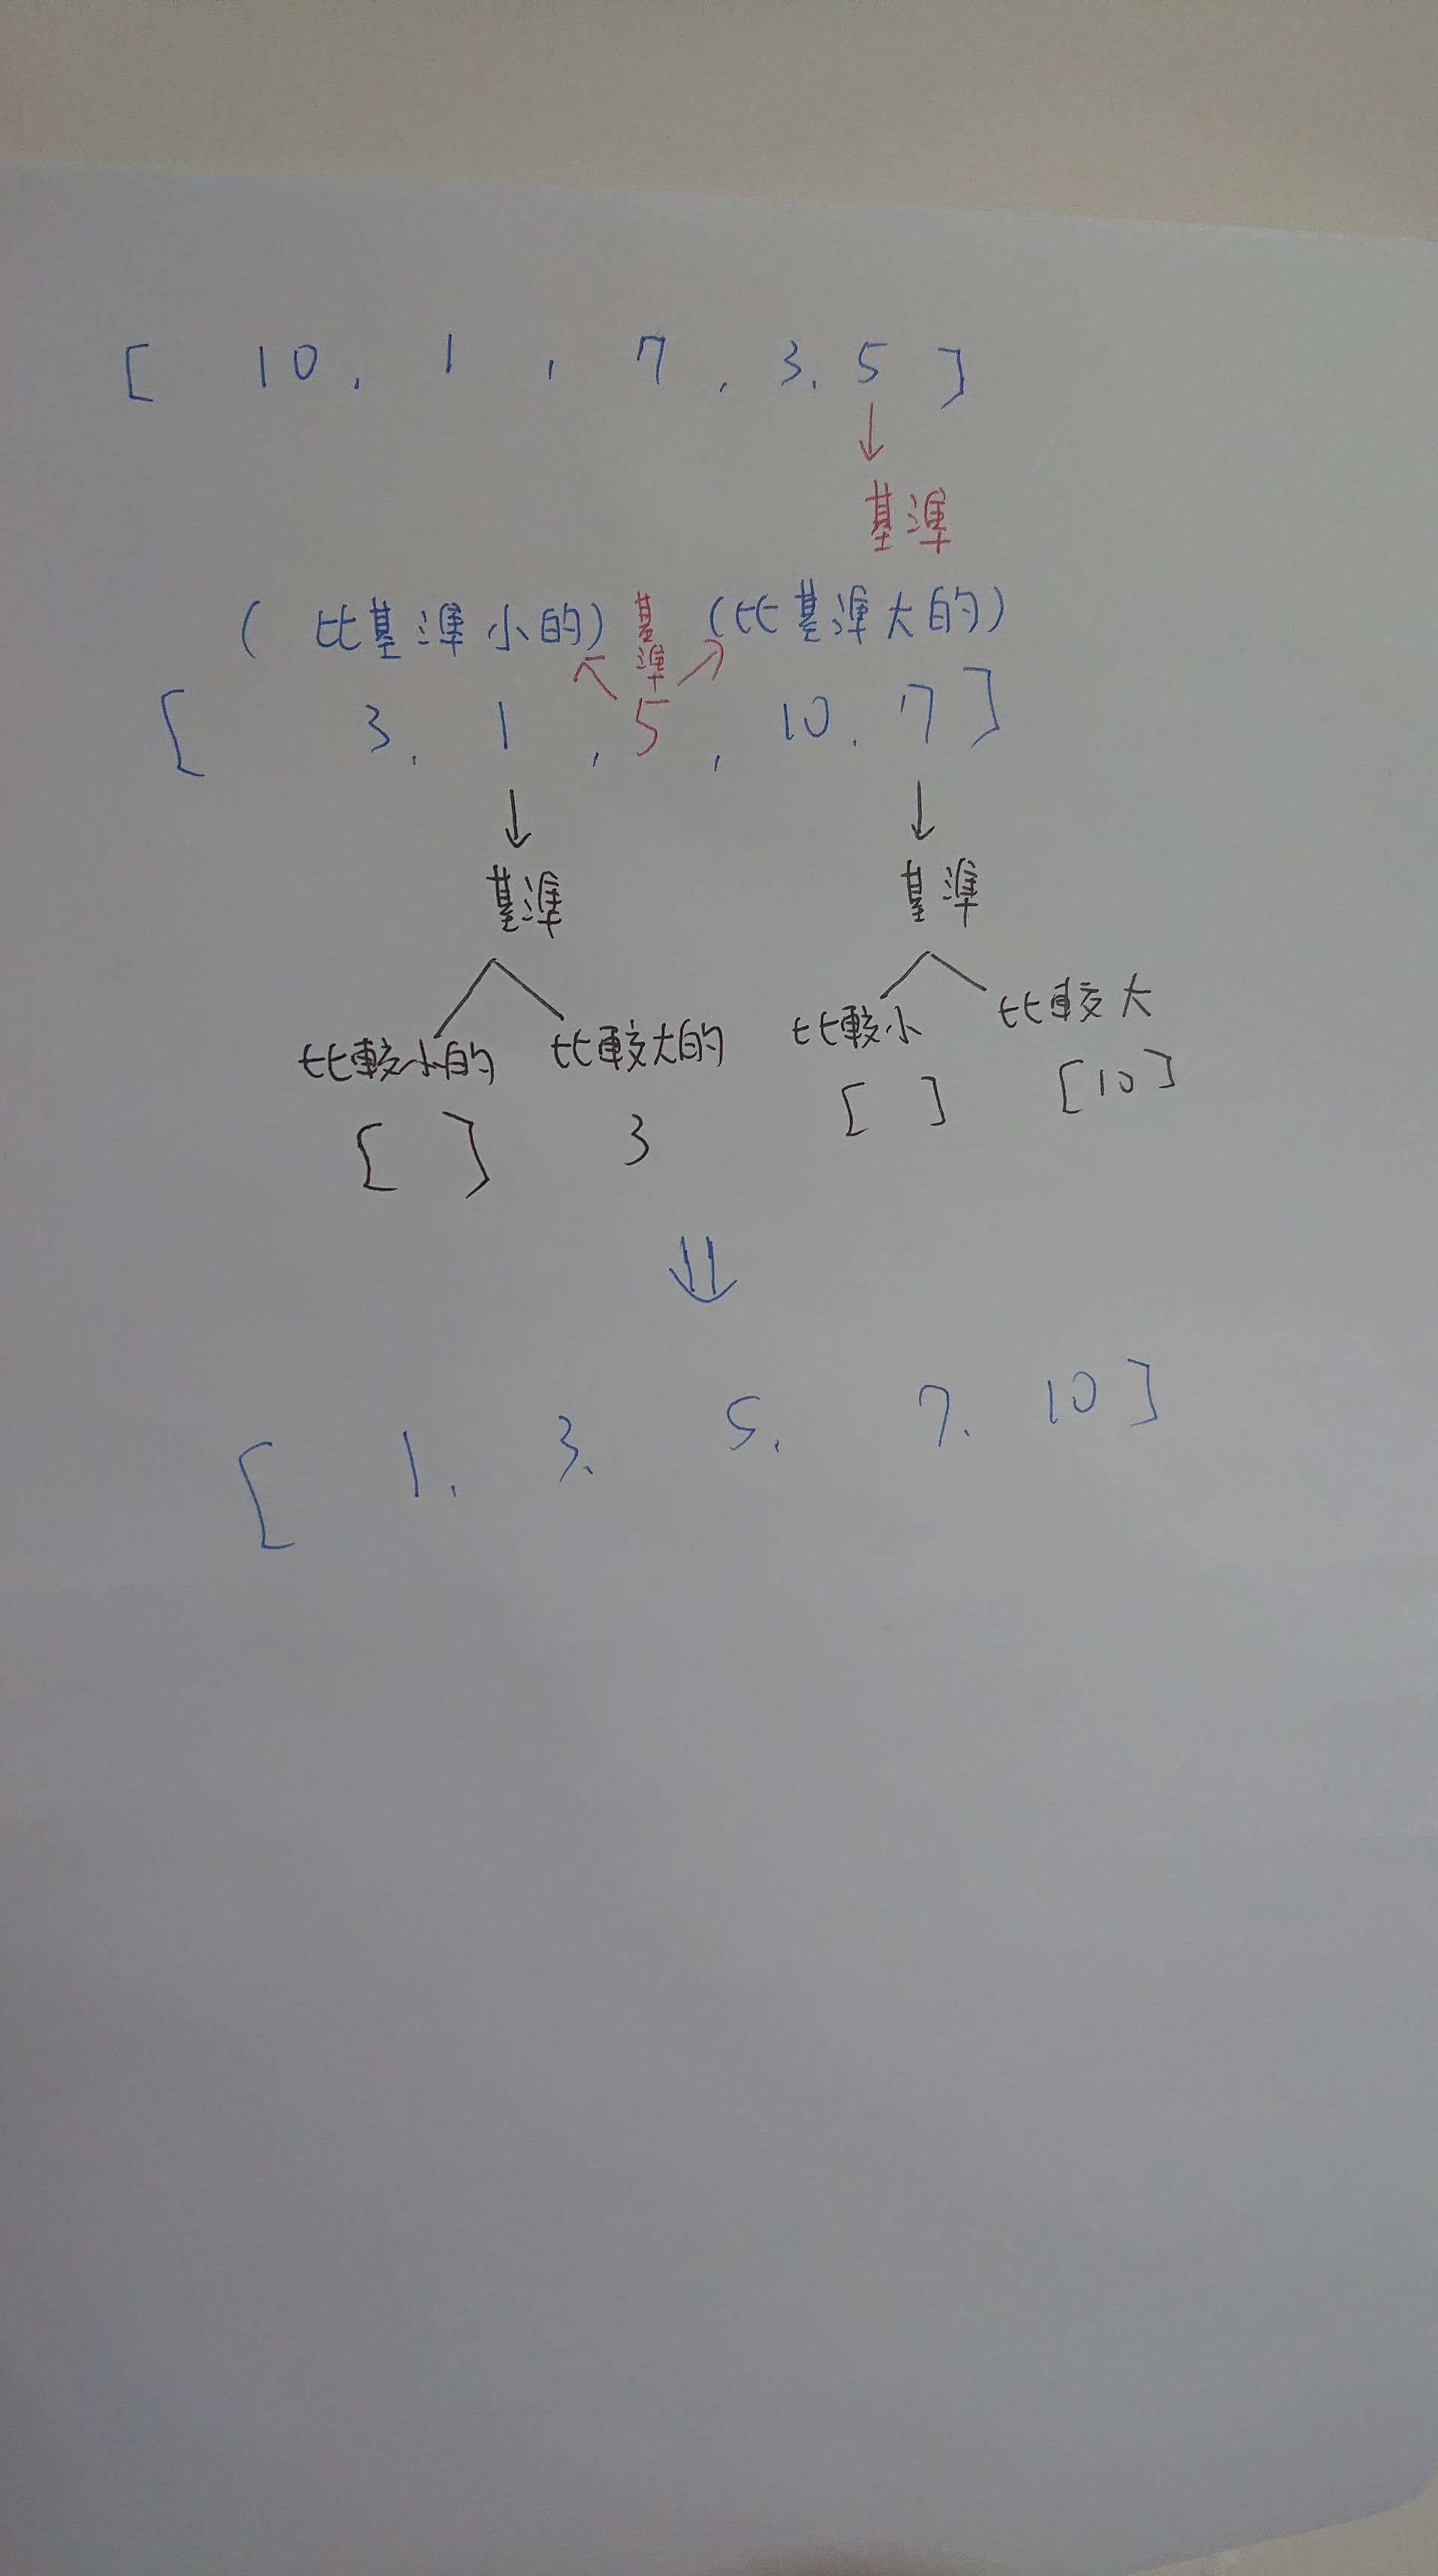 [ 10, 1, 7, 3, 5 ]
↓
基準
(比基準小的) 基準 (比基準大的)
[ 3, 1, 5, 10, 7 ]
↓ ↓
基準 基準
比較小的 比較大的 比較小 比較大
[ ] 3 [ ] [10]
⇓
[ 1, 3, 5, 7, 10 ]